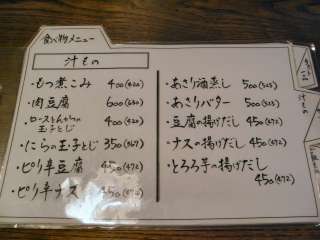 食べ物メニュー
汁もの
・もつ煮こみ 400(420)
・肉豆腐 600(630)
・ローストとんかつの玉子とじ 400(420)
・にらの玉子とじ 350(367)
・ピリ辛豆腐 450(472)
・ピリ辛ナス 450(472)
・あさり酒蒸し 500(525)
・あさりバター 500(525)
・豆腐の揚げだし 450(472)
・ナスの揚げだし 450(472)
・とろろ芋の揚げだし
450(472)
汁もの